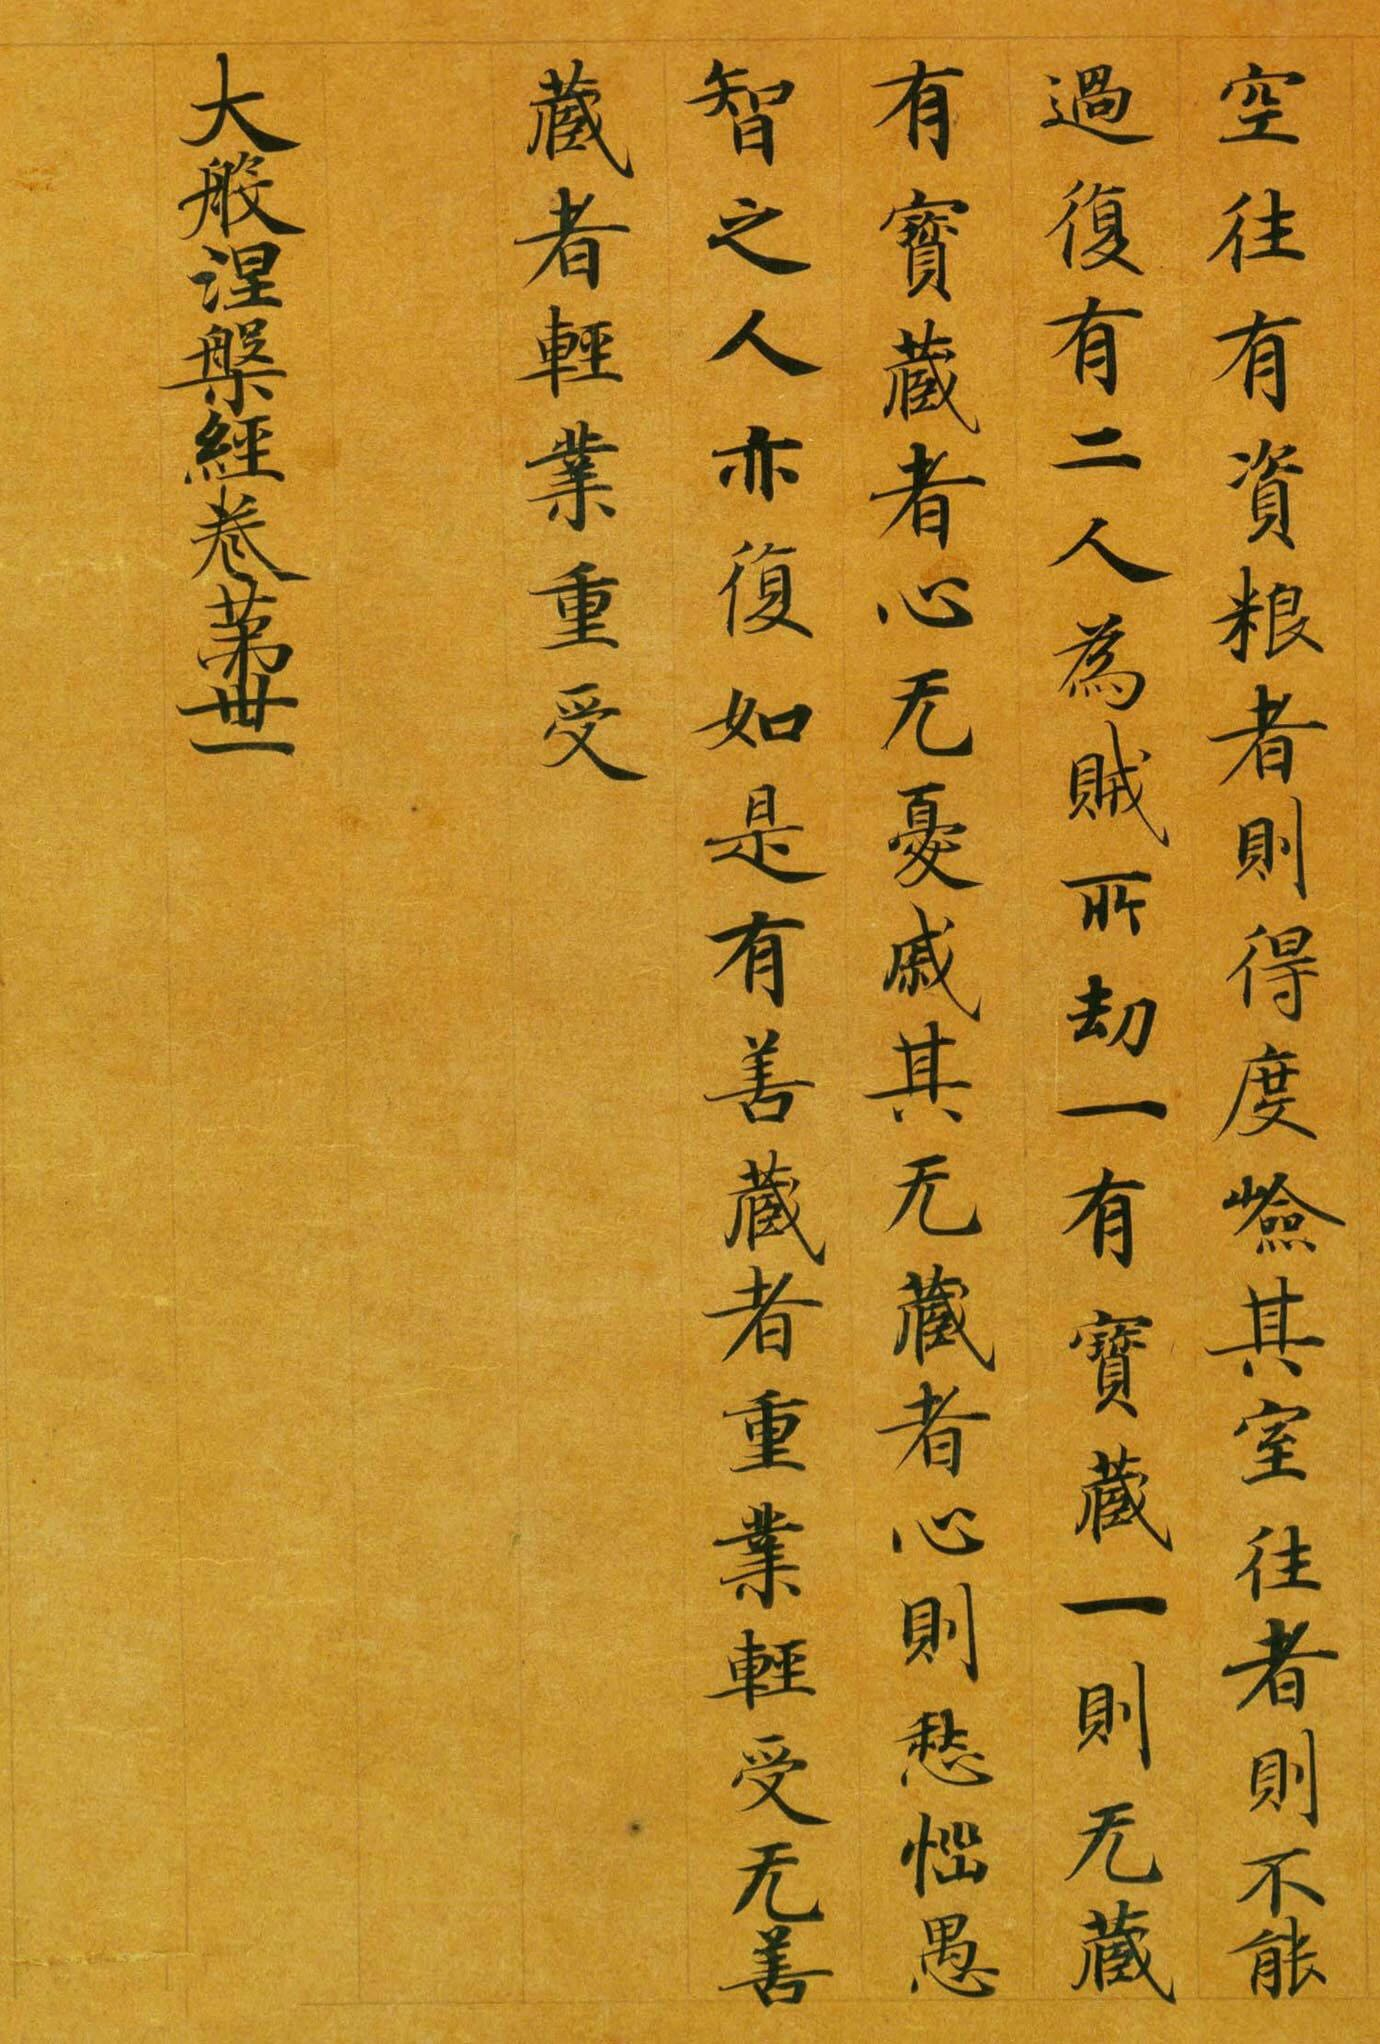 空往有資粮者則得度嶮其室往者則不能
過復有二人為賊所劫一有寶藏一則无藏
有寶藏者心无憂戚其无藏者心則愁惱愚
智之人亦復如是有善藏者重業輕受无善
藏者輕業重受
大般涅槃經卷第卅一